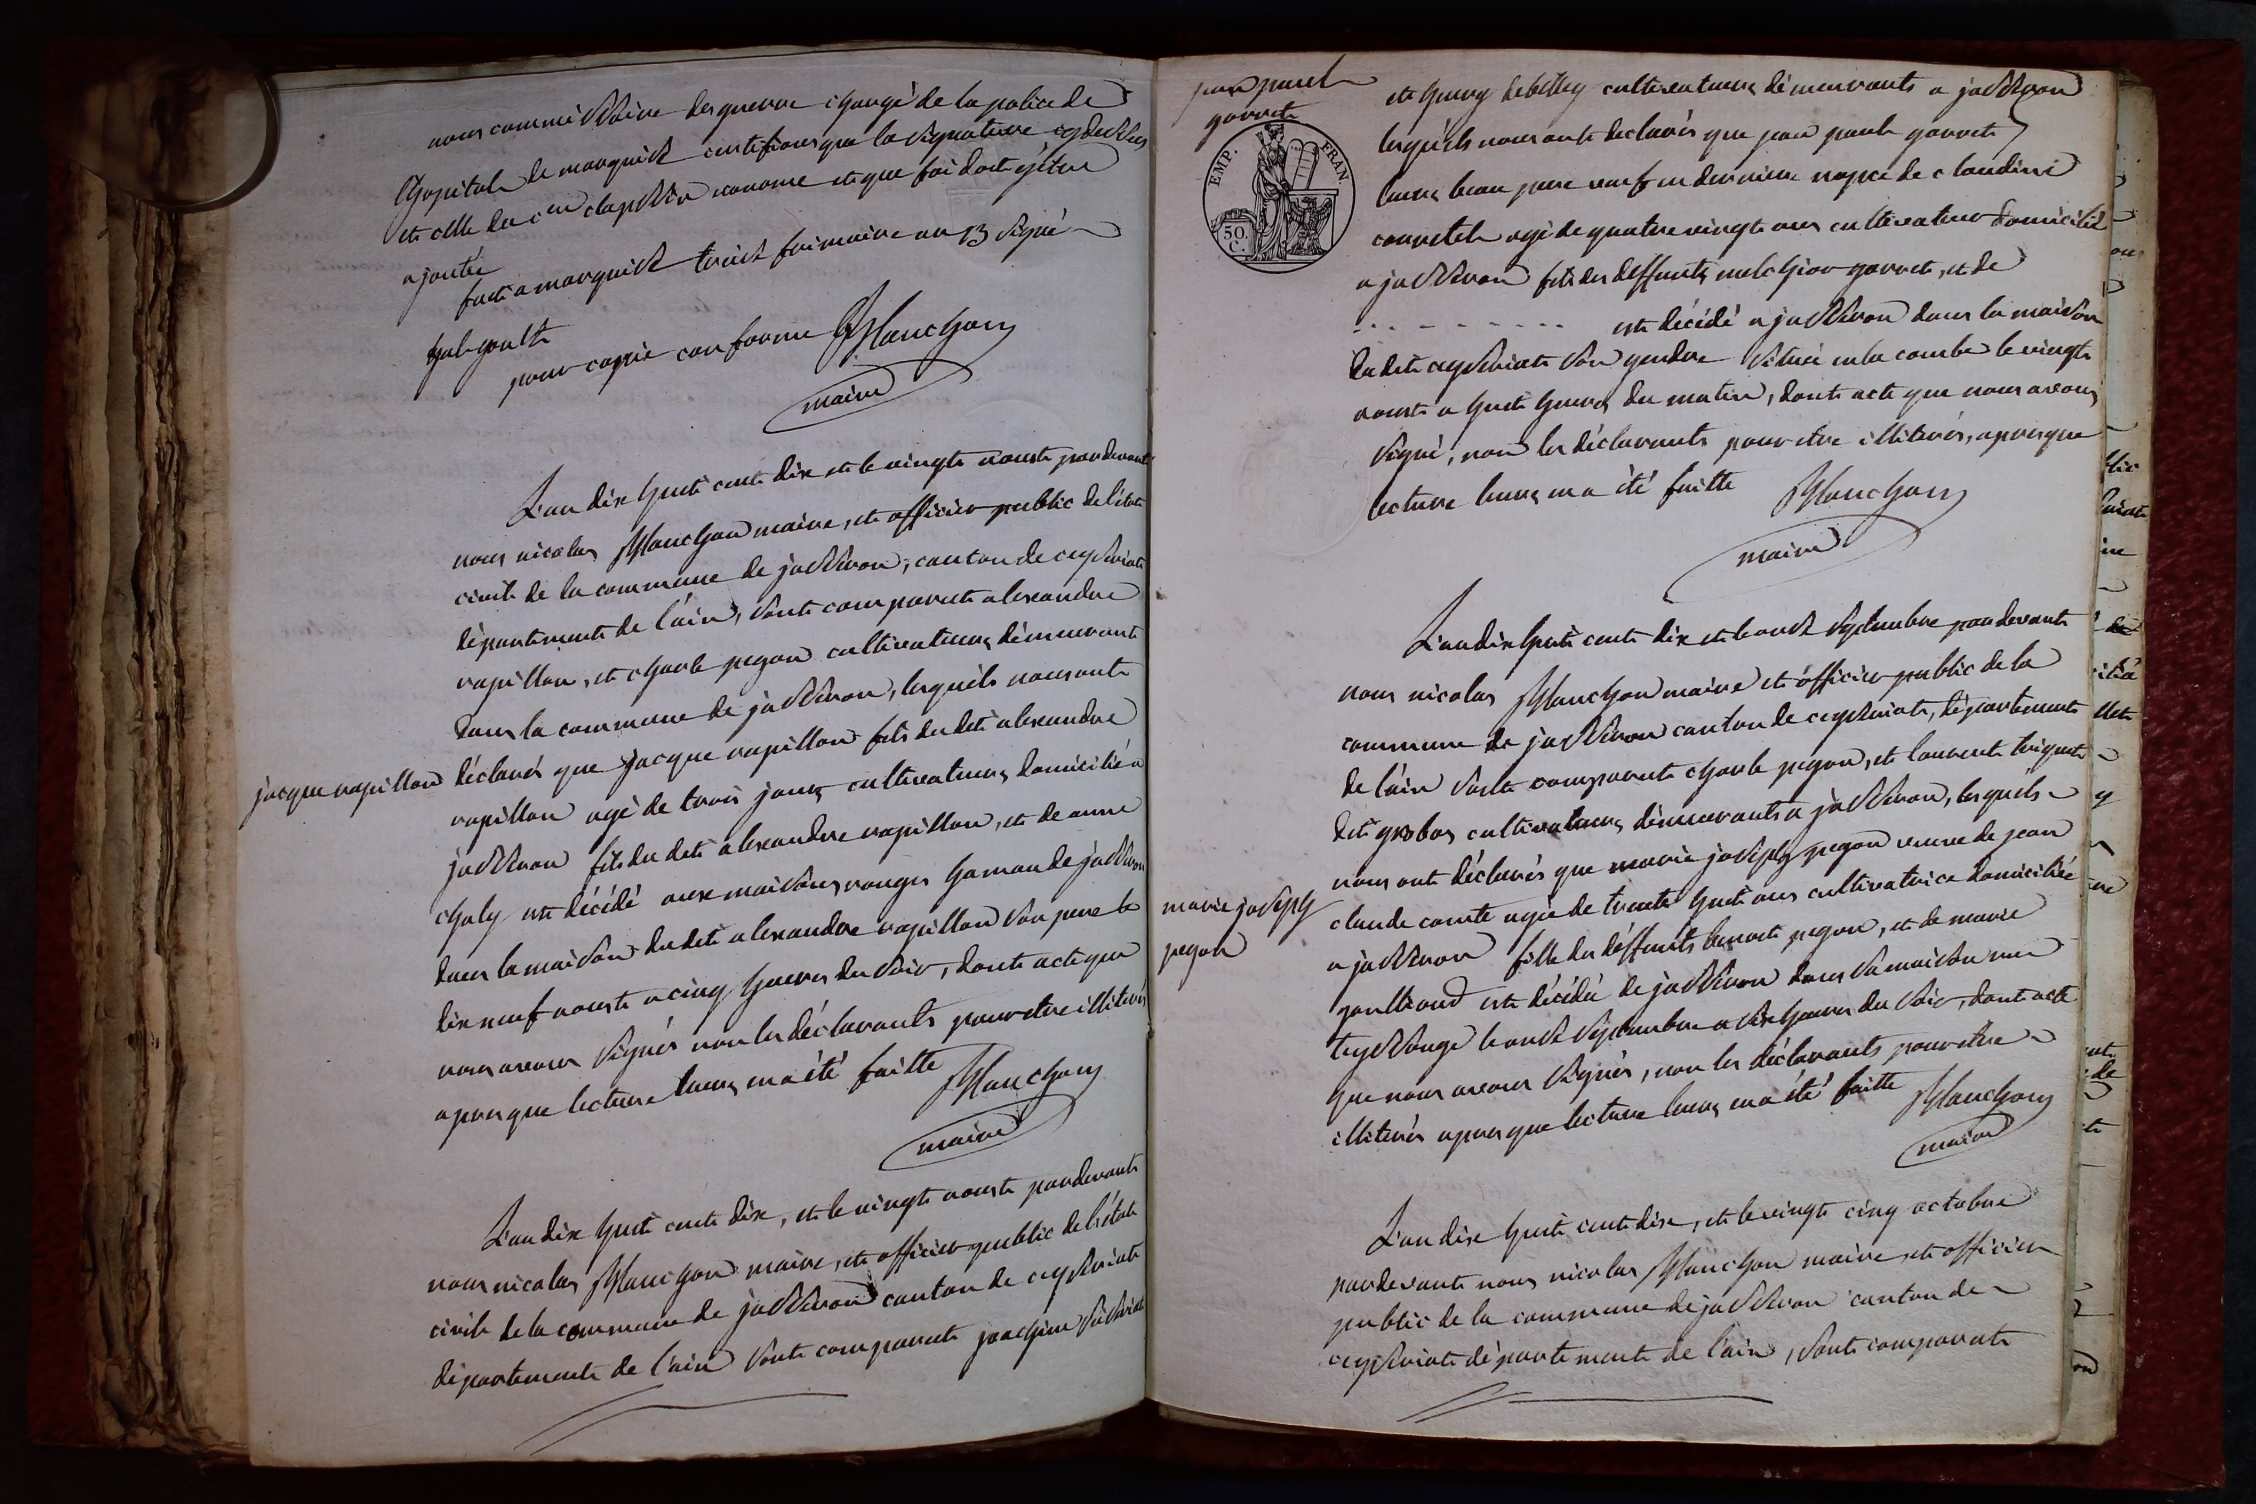 nous commissaire des guerre chargé de la police de
l'hopital de marquist certifions que la signature cydessus
et celle du c.en clapssin econome et que foi doit y être
ajoutée
fait a marquist treist frimaire an 13 signé
galgoult
pour copie conforme Planchon
maire
L'an dix huit cent dix et le vingt aoust pardevant
nous nicolas Planchon maire, et officier public de l'état
civil de la commune de jasseron, canton de ceyseriat
département de l'ain, sont comparut alexandre
rapillon, et charle pegon cultivateurs démeurant
dans la commune de jasseron, lesquels nous ont
jacque rapillon
déclarés que jacque rapillon fils du dit alexandre
rapillon agé de trois jours cultivateurs domicilié a
jasseron fils du dit alexandre rapillon, et de anne
choly est décédé aux maisons rouges hamau de jasseron
dans la maison du dit alexandre rapillon son pere le
dix neuf aoust a cinq heures du soir, dont acte que
nous avons signés non les déclarants pour etre illiterés
apres que lecture leurs en a été faitte Planchon
maire
L'an dix huit cent dix, et le vingt aoust pardevant
nous nicolas Planchon maire, et officier public de l'état
civil de la commune de jasseron canton de ceyseriat
département de l'ain sont comparut joachim
jean paul
gorret
EMP. FRAN.
50. C.
et hury cultivateurs démeurants a jasseron
lesquels nous ont declarés que jean paul gorret
leurs beau pere veuf en derniere nopce de claudine
agé de quatre vingt ans cultivateur domicilié
a jasseron fils des deffunts melchior gorret, et de
. . . - - - - - - - est décédé a jasseron dans la maison
du dit ceyseriat son gendre situé en la combe le vingt
aoust a huit heures du matin, dont acte que nous avons
signé, non les déclarants pour etre illiterés, apres que
lecture leurs en a été faitte Planchon
maire
L'an dix huit cent dix et le onst septembre pardevant
nous nicolas Planchon maire et officier public de la
commune de jasseron canton de ceyseriat, département
de l'ain sont comparut charle pegon, et laurent briquet
dit grobas cultivateurs démeurants a jasseron, lesquels
nous ont déclarés que marie joseph pegon veuve de jean
marie joseph
pegon
claude comte agée de trente huit ans cultivatrice domiciliée
a jasseron fille des déffunts benoit pegon, et de marie
goulliond est décédée de jasseron dans sa maison rue
teyssonge le onst septembre a six heures du soir, dont acte
que nous avons signés, non les déclarants pour etre
illiterés apres que lecture leurs en a été faitte Planchon
maire
L'an dix huit cent dix, et le vingt cinq octobre
pardevant nous nicolas Planchon maire, et officier
public de la commune de jasseron canton de
ceyseriat département de l'ain, sont comparut